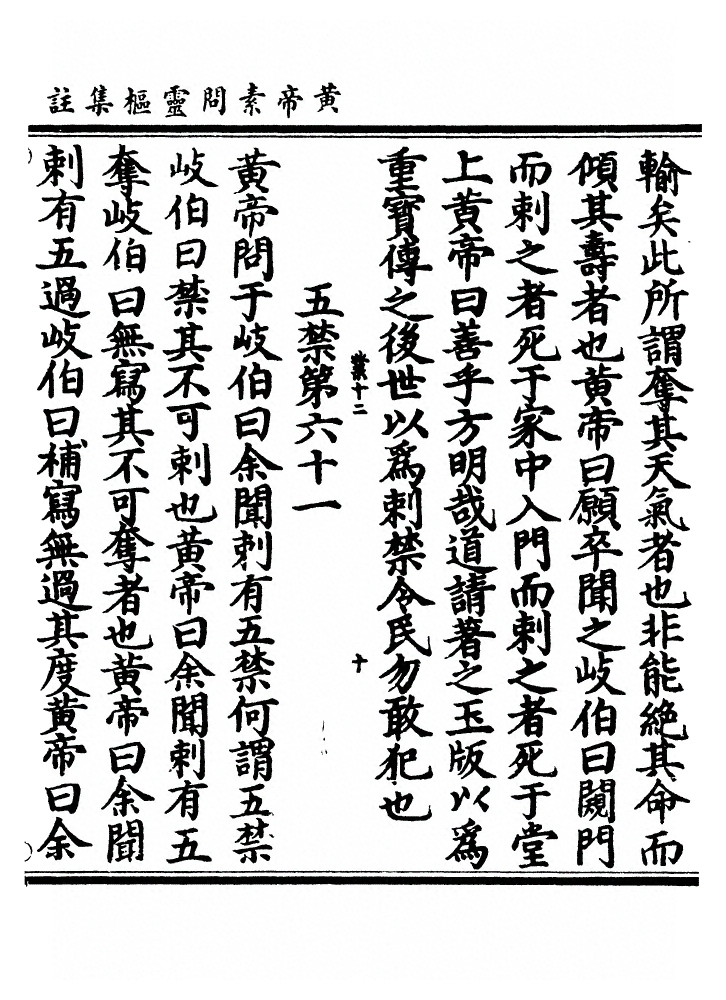 黄帝素問靈樞集註
輸矣此所謂奪其天氣者也非能絶其命而
傾其壽者也黄帝曰願卒聞之岐伯曰闚門
而刺之者死于家中入門而刺之者死于堂
上黄帝曰善乎方明哉道請著之玉版以爲
重寶傳之後世以爲刺禁令民勿敢犯也
業十二
十
五禁第六十一
黄帝問于岐伯曰余聞刺有五禁何謂五禁
岐伯曰禁其不可刺也黄帝曰余聞刺有五
奪岐伯曰無寫其不可奪者也黄帝曰余聞
刺有五過岐伯曰補寫無過其度黄帝曰余